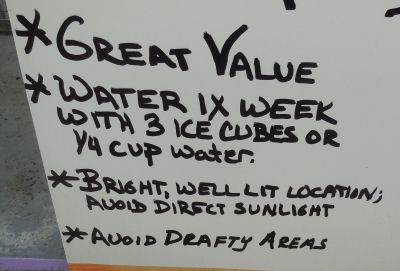 * GREAT VALUE
* WATER 1X WEEK
WITH 3 ICE CUBES OR
1/4 CUP water.
* BRIGHT, WELL LIT LOCATION;
AVOID DIRECT SUNLIGHT
* AVOID DRAFTY AREAS